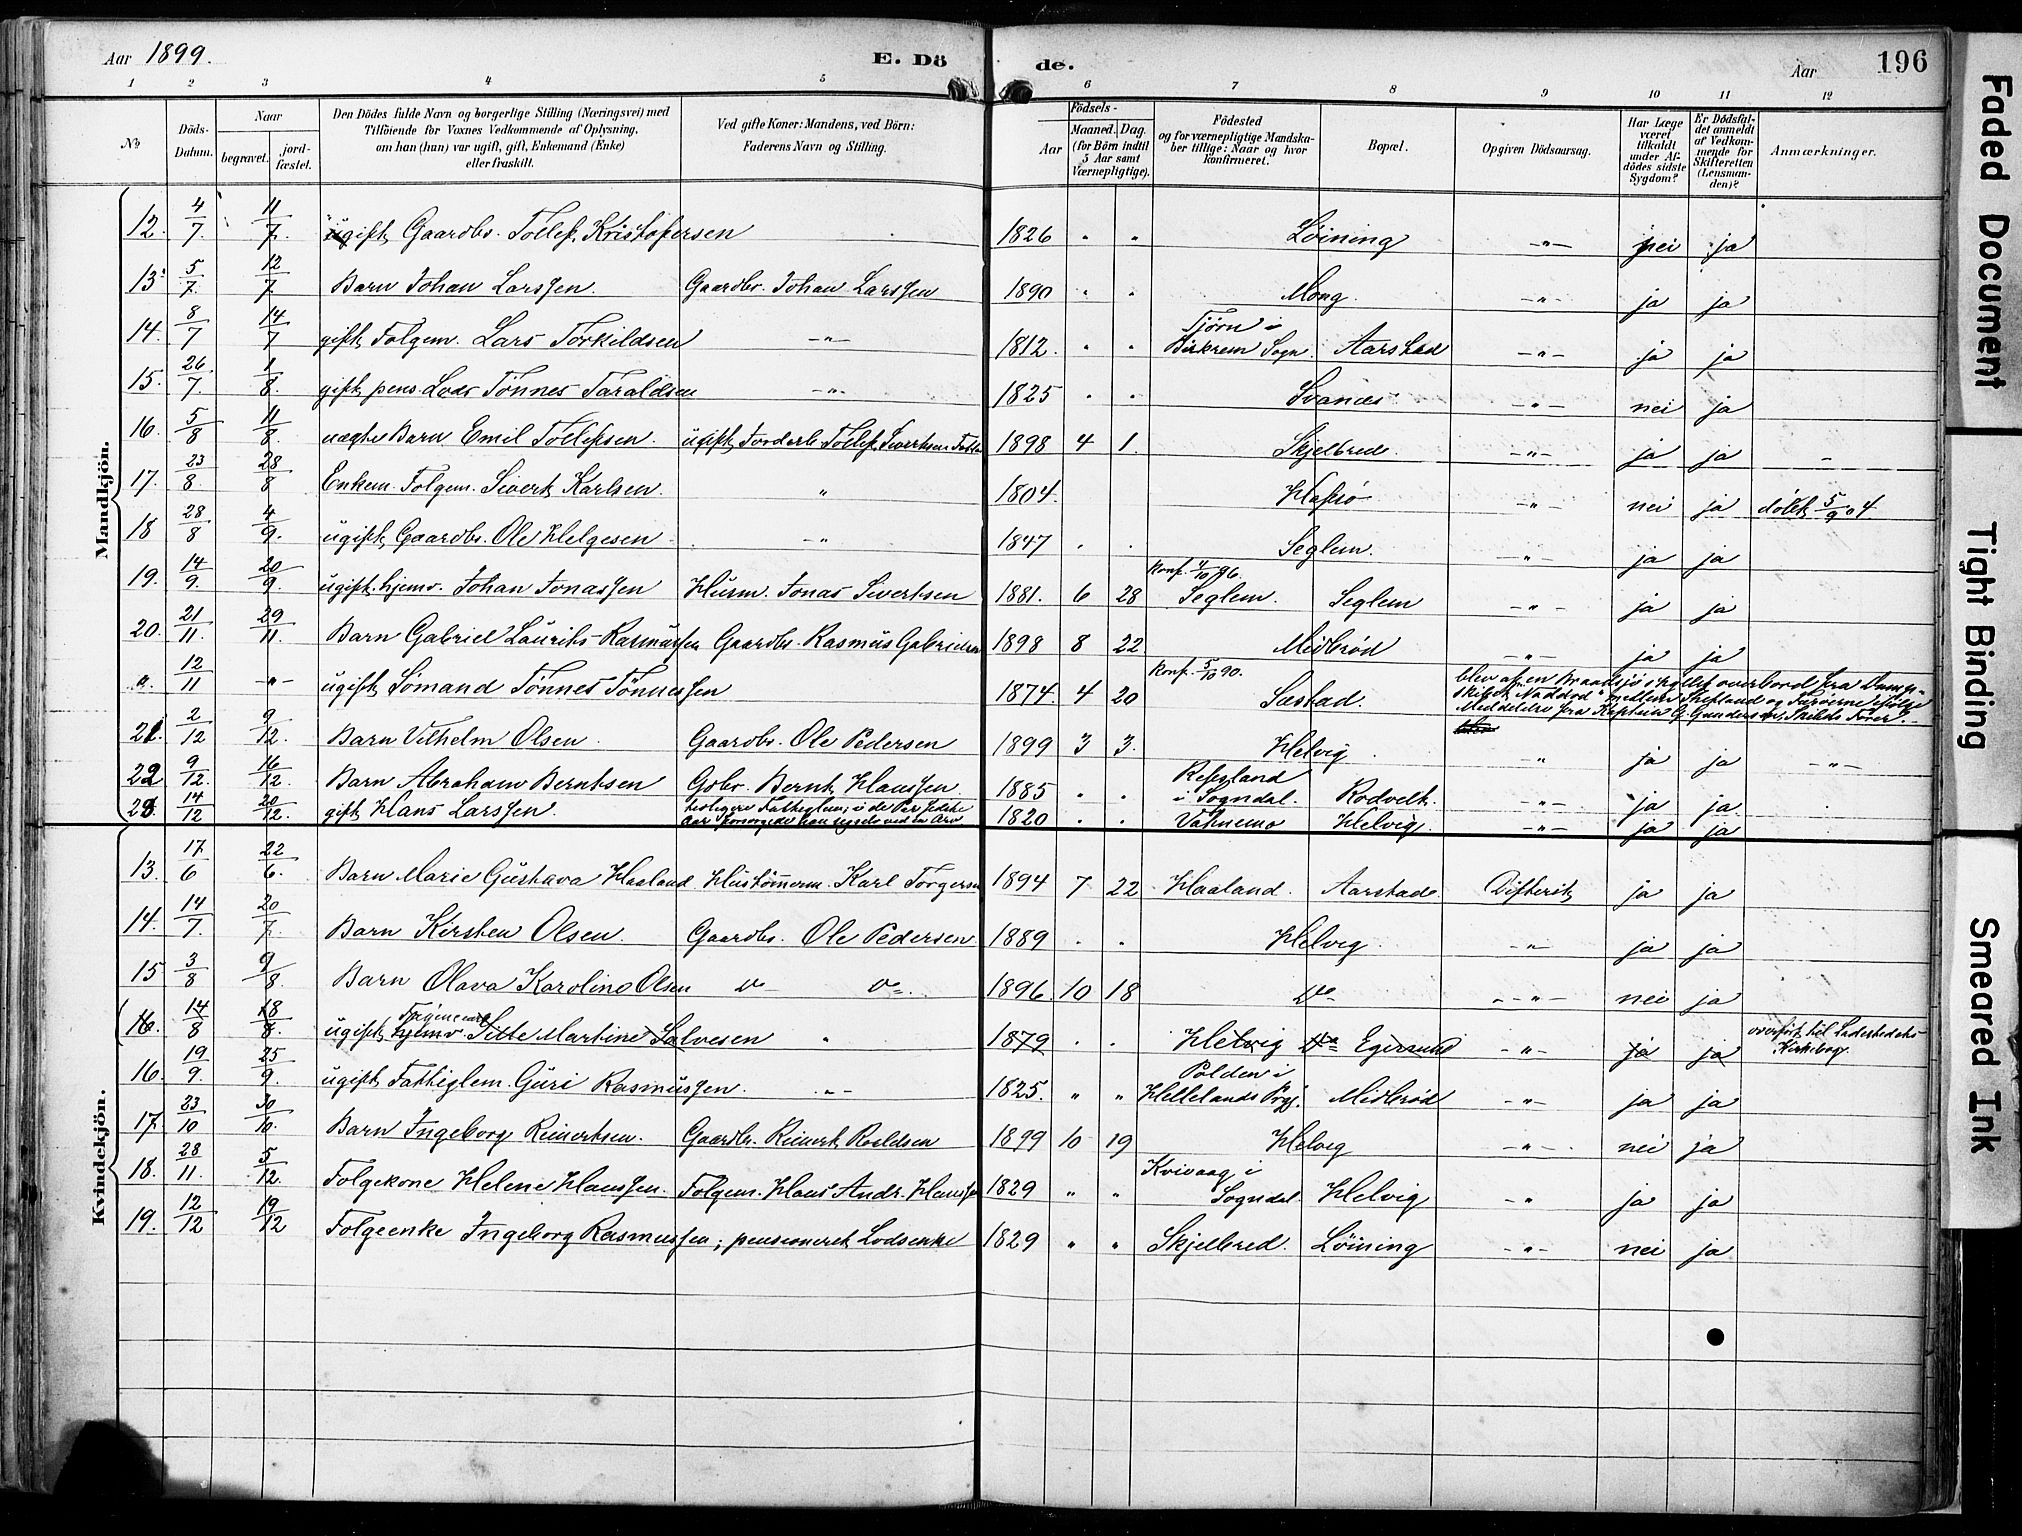 Aar 1899. E. Dö de. Aar 196
1 2 3 4 5 6 7 8 9 10 11 12
No
Döds-Datum.
Naar begravet. jordfæstet.
Den Dödes fulde Navn og borgerlige Stilling (Næringsvei) med Tilföiende for Voxnes Vedkommende af Oplysning, om han (hun) var ugift, gift, Enkemand (Enke) eller fraskilt.
Ved gifte Koner: Mandens, ved Börn: Faderens Navn og Stilling.
Födsels- Aar Maaned. Dag. (for Börn indtil 5 Aar samt Værnepligtige).
Födested og for værnepligtige Mandskaber tillige: Naar og hvor konfirmeret.
Bopæl.
Opgiven Dödsaarsag.
Har Læge været tilkaldt under Afdödes sidste Sygdom?
Er Dödsfaldet anmeldt af Vedkommende for Skifteretten (Lensmanden)?
Anmærkninger.
Mandkjön.
12. 4/7. 11/7. ugift Gaardbr. Tollef Kristofersen 1826 " " Løining -"- nei ja
13. 5/7. 12/7 Barn Johan Larssen. Gaardbr. Johan Larssen 1890 " " Mong. -"- ja ja
14. 8/7 14/7 gift Folgem. Lars Torkildsen -"- 1812. " " Tjørn i Birkrem Sogn. Aarstad -"- ja ja
15. 26/7 1/8. gift pens. Lods Tønnes Taraldsen -"- 1825 " " Svanæs -"- nei ja
16. 5/8 11/8. uægte Barn Emil Tollefsen. ugift Tollef Sivertsen 1898 4 1. Skjelbred. -"- ja ja
17. 23/8. 28/8 Enkem. Folgem. Sivert Karlsen. " 1804. Hafsø -"- nei ja døbt 5/9 04
18 28/8 4/9. ugift Gaardbr. Ole Helgesen -"- 1847 . . Seglem. -"- ja ja
19. 14/9. 20/9. ugift. hjemv. Johan Jonassen Husm. Jonas Sivertsen 1881. 6 28 Konf. 4/10 96. Seglem. Seglem -"- ja ja
20. 21/11. 29/11. Barn Gabriel Laurits Rasmussen Gaardbr. Rasmus Gabrielsen 1898 8 22 Midbrød -"- ja ja
a. 12/11 -"- ugift Sømand Tønnes Tønnessen 1874. 4 20 Konf. 5/10 90. Sæstad. blev af en Braadsjø skyllet overbord fra Dampskibet "Naddod" mellem Shetland og Færøerne ifølge Meddelelse fra Kaptein G. Gundersen, Skibets Fører.
21. 2/12 9/12. Barn Vilhelm Olsen Gaardbr. Ole Pedersen 1899 3 3. Helvig " ja ja -"-
22 9/12. 16/12. Barn Abraham Berntsen Gbr. Bernt Hanssen 1885 " " Refsland i Sogndal. Rodvelt. -"- ja ja.
23. 14/12 20/12. gift Hans Larssen. 1820 . . Vatnemo Helvig. -"- ja ja
Kvindekjön.
13. 17/6 22/6. Barn Marie Gustava Haaland Hustømrm. Karl Torgersen 1894 7 22 Haaland. Aarstad. Difterit ja ja
14. 14/7. 20/7. Barn Kirsten Olsen. Gaardbr. Ole Pedersen 1889 . . Helvig. -"- ja ja
15 3/8 9/8. Barn Olava Karoline Olsen Do Do 1896. 10 18 Do -"- nei ja
16. 14/8 18/8. ugift hjemv. Martine Salvesen " 1879 . . Helvig Do Egersund -"- ja ja overført til Ladestedets Kirkebog
16. 19/9. 25/9. ugift Fattiglem. Guri Rasmussen. -"- 1825. " " Polden i Hellelands Prgj. Midbrød -"- ja ja
17. 23/10 30/10. Barn Ingeborg Reinertsen. Gaardbr. Reinert Roaldsen 1899 10 19 Helvig -"- nei ja
18. 28/11. 5/12. Folgekone Helene Hanssen. Folgem. Hans Andr. Hanssen 1829 " " Kvivaag i Sogndal Helvig -"- ja ja
19. 12/12 19/12 Folgeenke Ingeborg Rasmussen; pensioneret Lodsenke 1829 " " Skjelbred. Løining -"- nei ja
Faded Document
Tight Binding
Smeared Ink